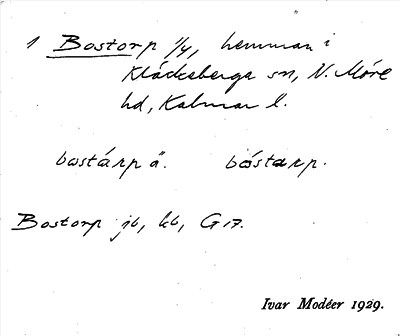 1 Bostorp 1/4, hemman i
Kläckeberga sn, N. Möre
hd, Kalmar l.
bastárp ä. bóstarp.
Bostorp jb, kb, G17.
Ivar Modéer 1929.